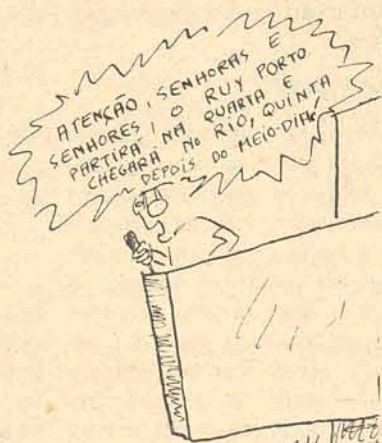 ATENÇÃO, SENHORAS E
SENHORES! O RUY PORTO
PARTIRÁ NA QUARTA E
CHEGARÁ NO RIO, QUINTA
DEPOIS DO MEIO-DIA!